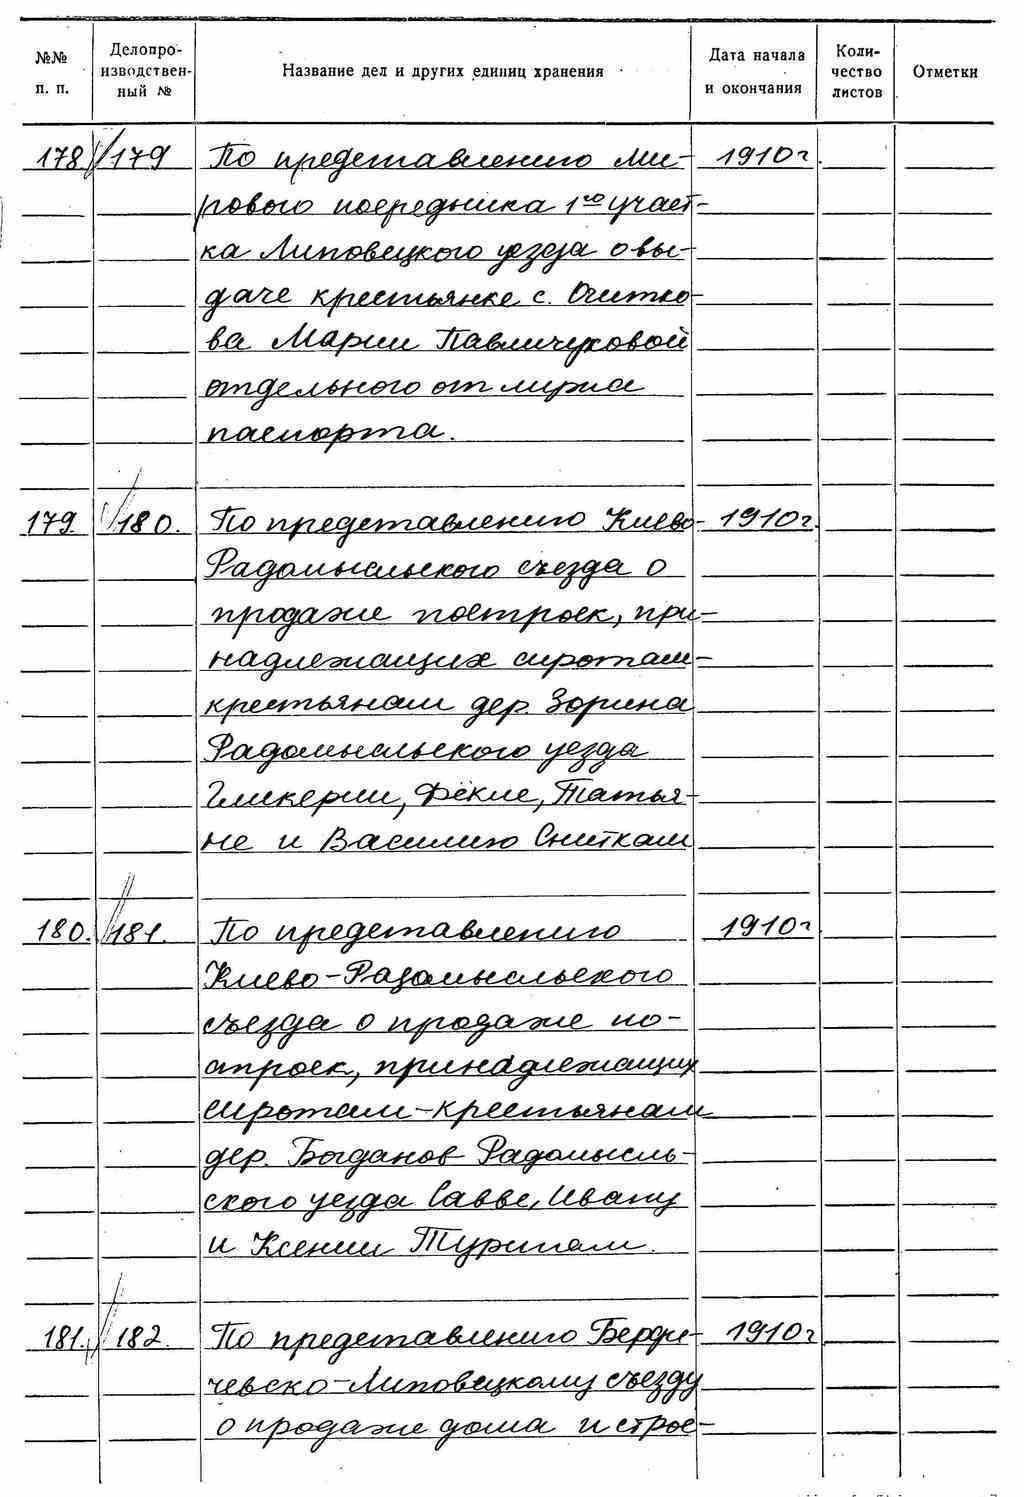 №№ п. п. Делопроизводственный № Название дел и других единиц хранения Дата начала и окончания Количество листов Отметки
178 179 По представлению Ми- 1910 г.
рового посредника 1го участ-
ка Липовецкого уезда о вы-
даче крестьянке с. Очитко-
ва Марии Павличуковой
отдельного от мужа
паспорта.
179. 180. По представлению Киево- 1910 г.
Радомысльского съезда о
продаже построек, при-
надлежащих сиротам-
крестьянам дер. Зорина
Радомысльского уезда
Гликерии, Фёкле, Татья-
не и Василию Сниткам
180. 181. По представлению 1910 г.
Киево-Радомысльского
съезда о продаже по-
строек, принадлежащих
сиротам-крестьянам
дер. Богданов Радомысль-
ского уезда Савве, Ивану
и Ксении Турипам.
181. 182. По представлению Берди- 1910 г.
чевско-Липовецкому съезду
о продаже дома и строе-